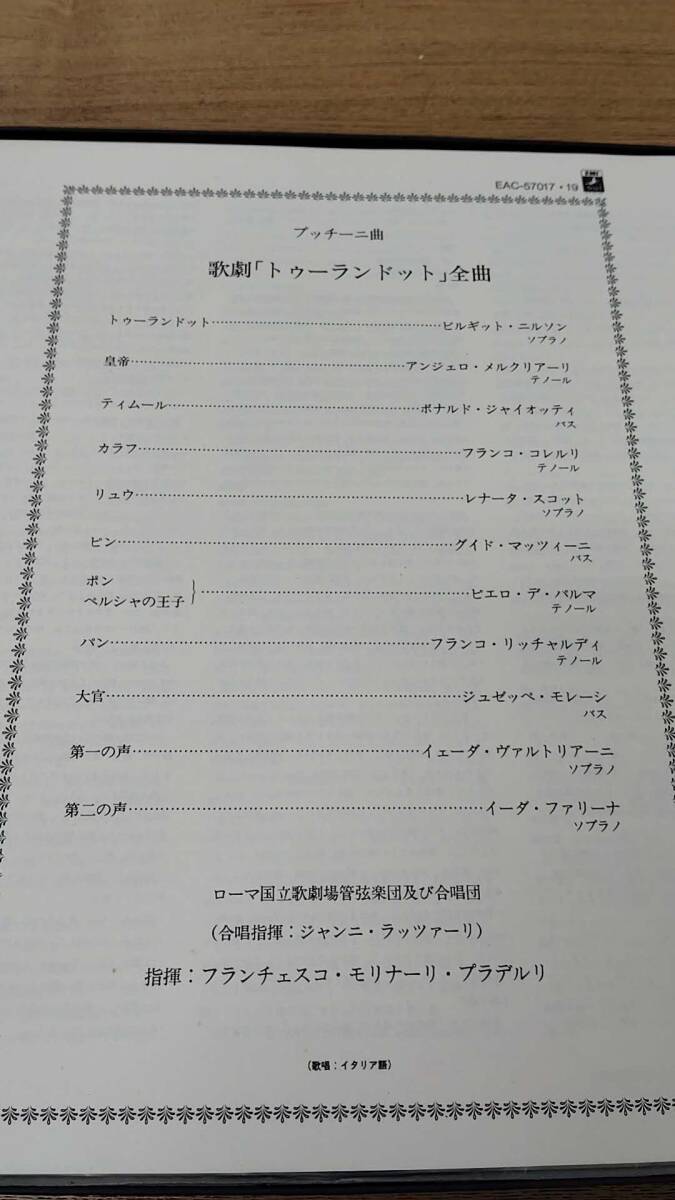 EAC-57017・19
プッチーニ曲
歌劇「トゥーランドット」全曲
トゥーランドット……ビルギット・ニルソン
ソプラノ
皇帝……アンジェロ・メルクリアーリ
テノール
ティムール……ボナルド・ジャイオッティ
バス
カラフ……フランコ・コレルリ
テノール
リュウ……レナータ・スコット
ソプラノ
ピン……グイド・マッツィーニ
バス
ポン
ペルシャの王子……ピエロ・デ・パルマ
テノール
パン……フランコ・リッチャルディ
テノール
大官……ジュゼッペ・モレーシ
バス
第一の声……イェーダ・ヴァルトリアーニ
ソプラノ
第二の声……イーダ・ファリーナ
ソプラノ
ローマ国立歌劇場管弦楽団及び合唱団
(合唱指揮：ジャンニ・ラッツァーリ)
指揮：フランチェスコ・モリナーリ・プラデルリ
(歌唱：イタリア語)